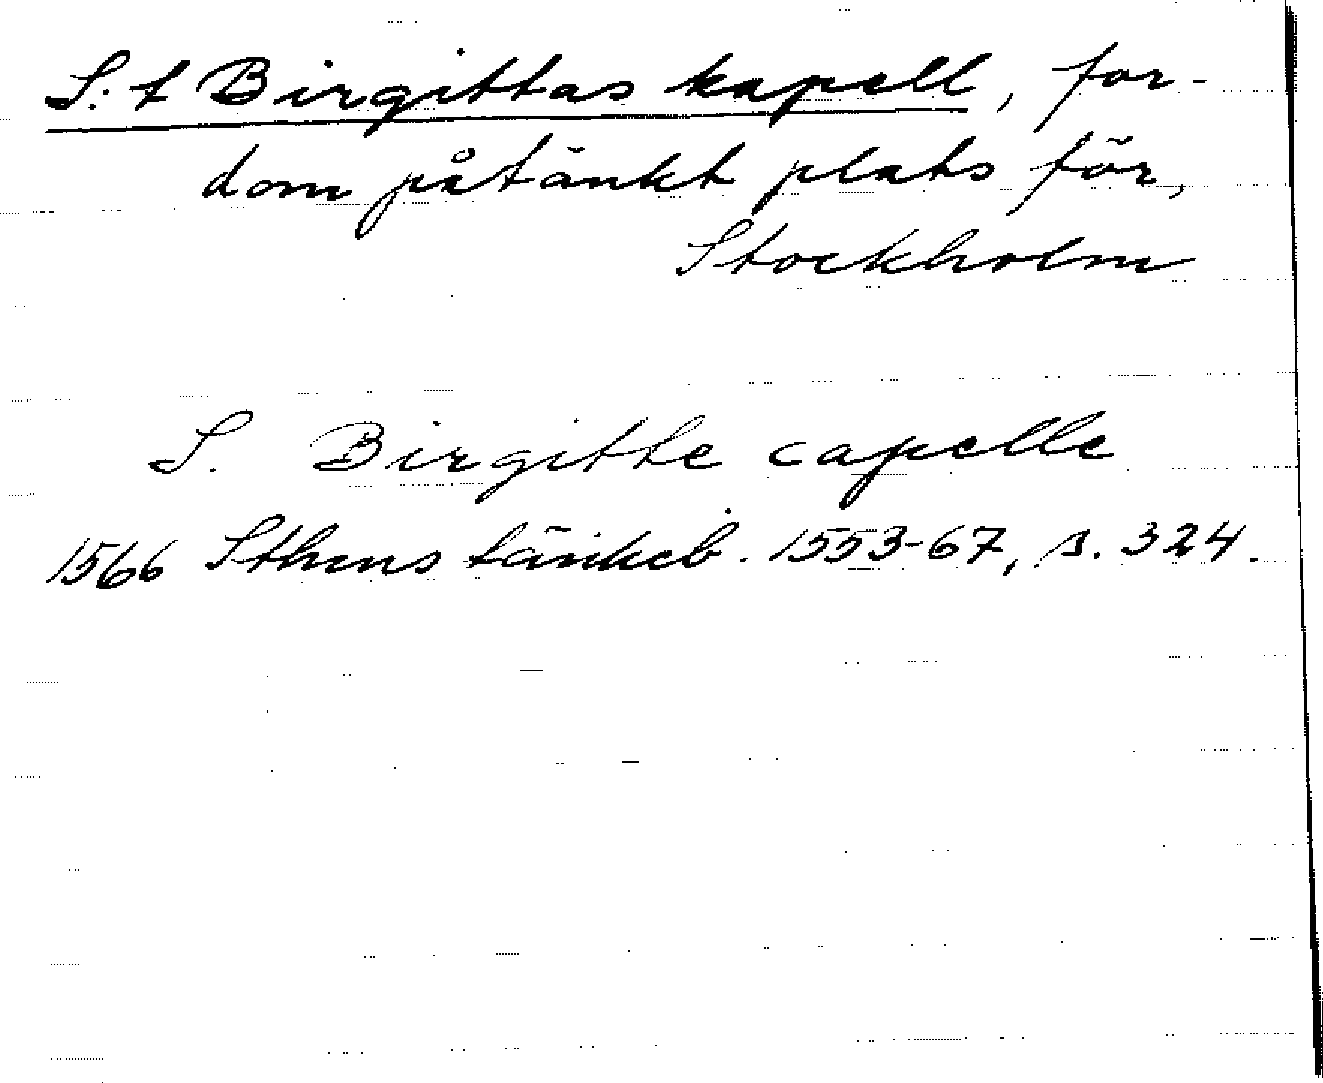 S:t Birgittas kapell, for-
dom påtänkt plats för,
Stockholm
S. Birgitte capelle
1566 Sthms tänkeb. 1553-67, s. 324.